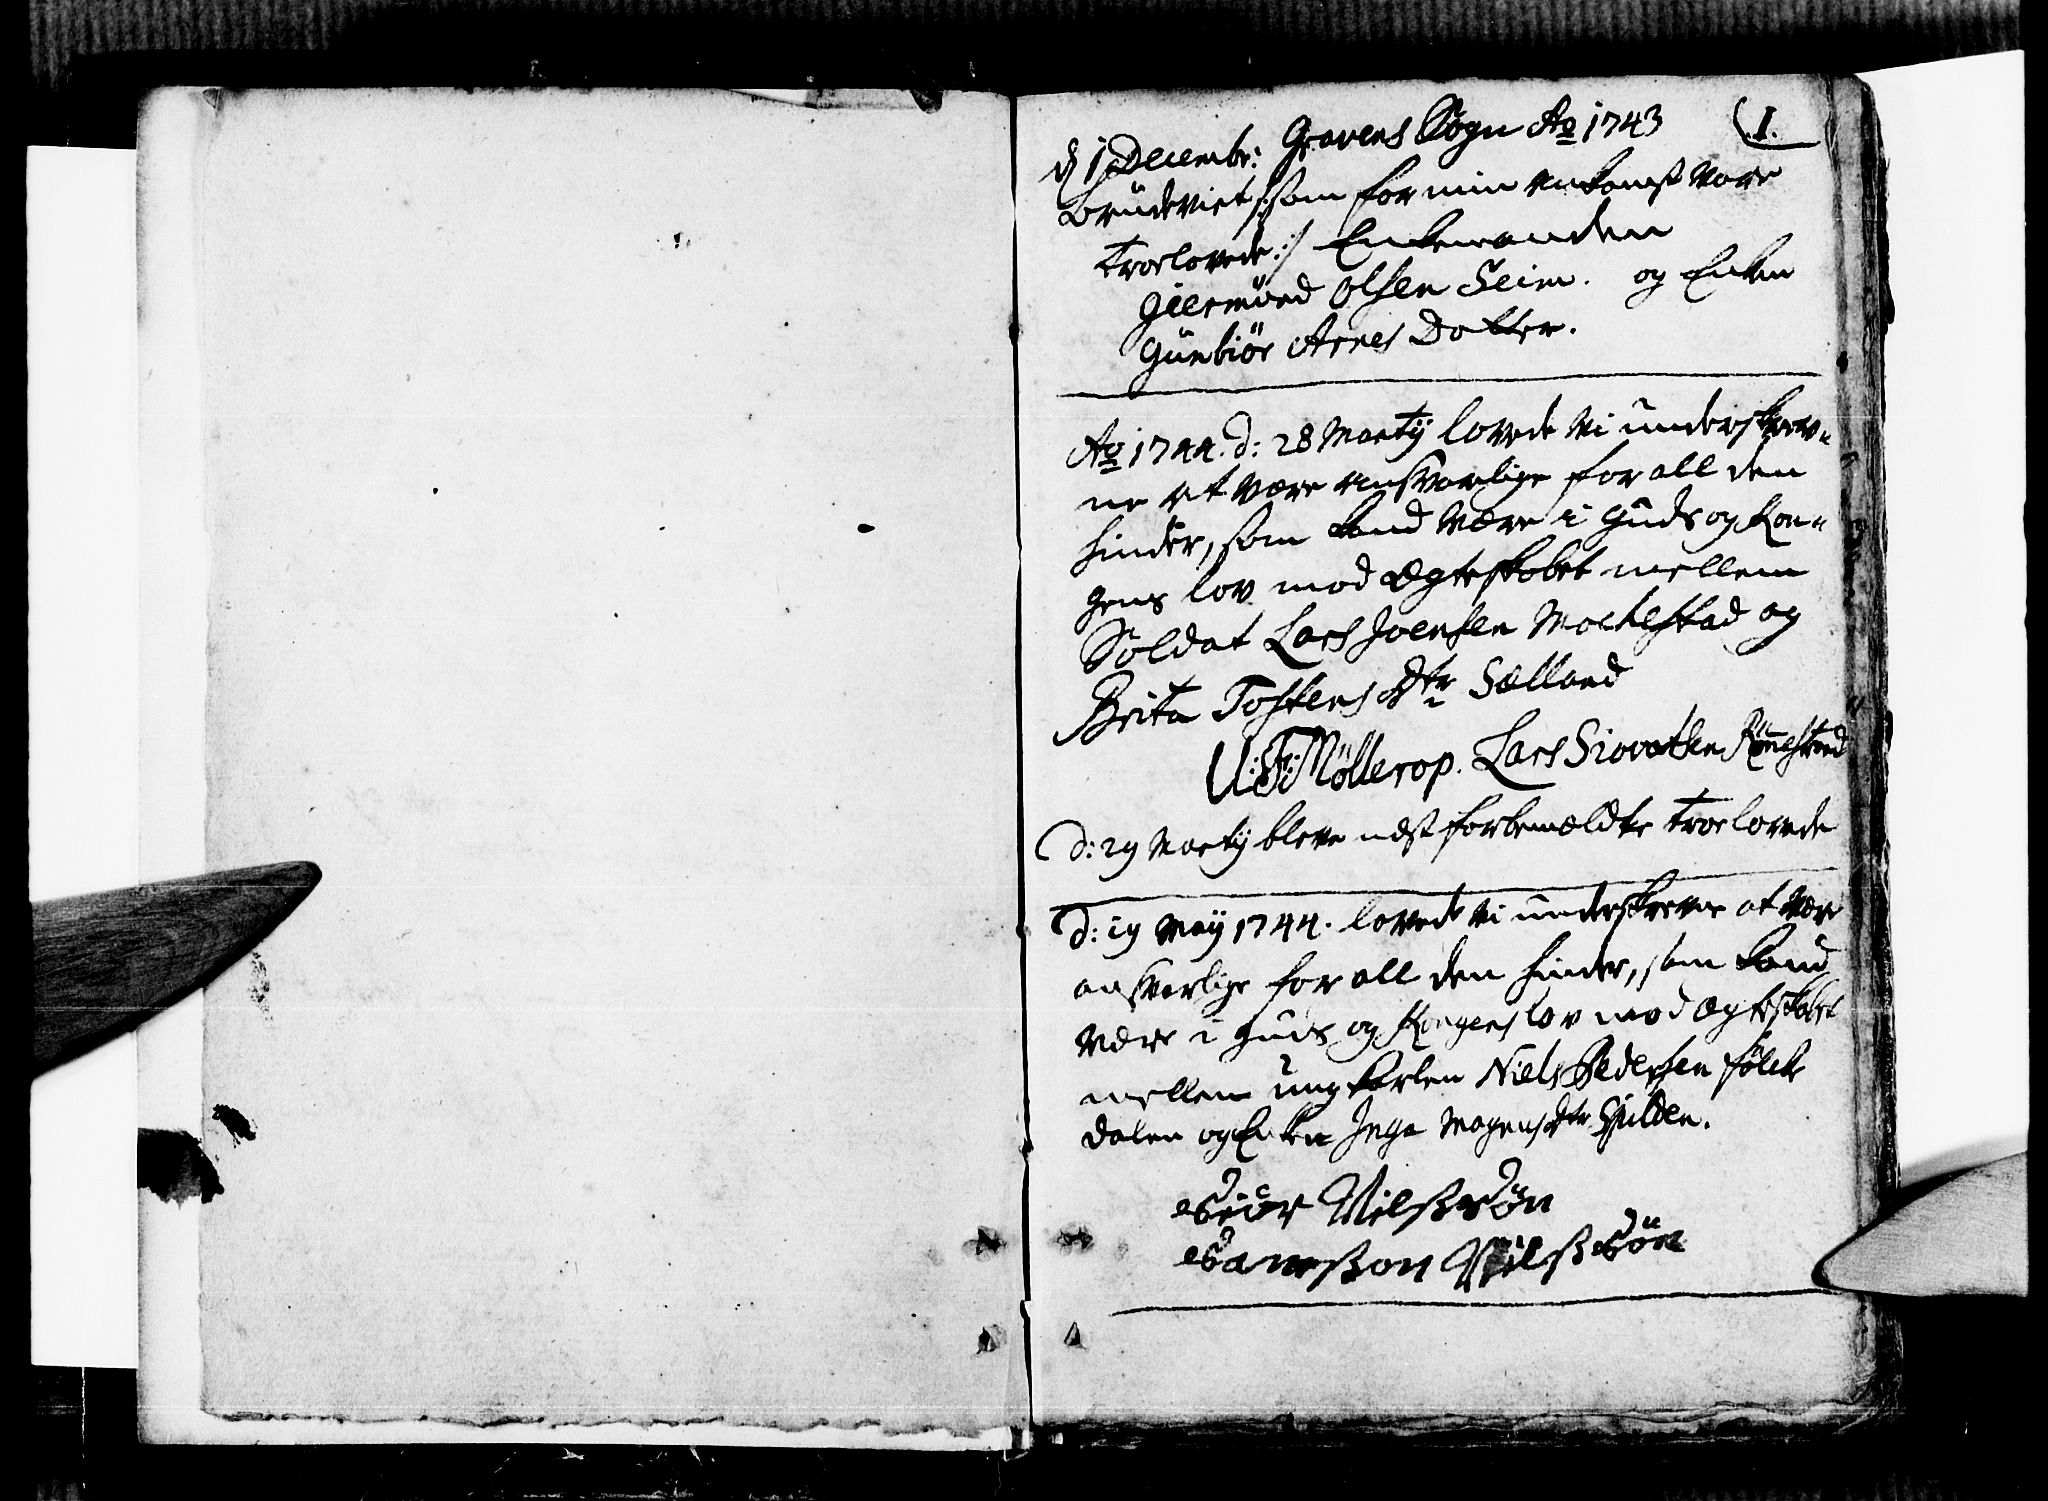 d 1 Decembr: Gravens Sogn Ao 1743 (I.
Brudeviet /:som for min ankomst vare
troelovede:/ Enkemanden
Giermund Olsen Seim. og Enken
Gunbiør Arnes Dotter.
Ao 1744. d: 28 Martij lovede vi underskrev-
ne at være ansvarlige for all den
hinder, som kand være i Guds og Kon-
gens lov mod Ægteskabet mellem
Soldat Lars Joensen Mockestad og
Brita Tostens Dtr Sælland
U: F: Møllerop. Lars Siovatsen Rønestrand
d: 29 Martij bleve næst forbemældte troelovede
d: 19 Maij 1744. lovede vi underskrevne at være
ansvarlige for all den hinder, som kand
være i Guds og Kongens lov mod Ægteskabet
mellem ung karlen Niels Pedersen Folke
dalen og Enken Inga Magens dtr Spilden.
Siver Nilsßøn
Samßon Nilsßøn